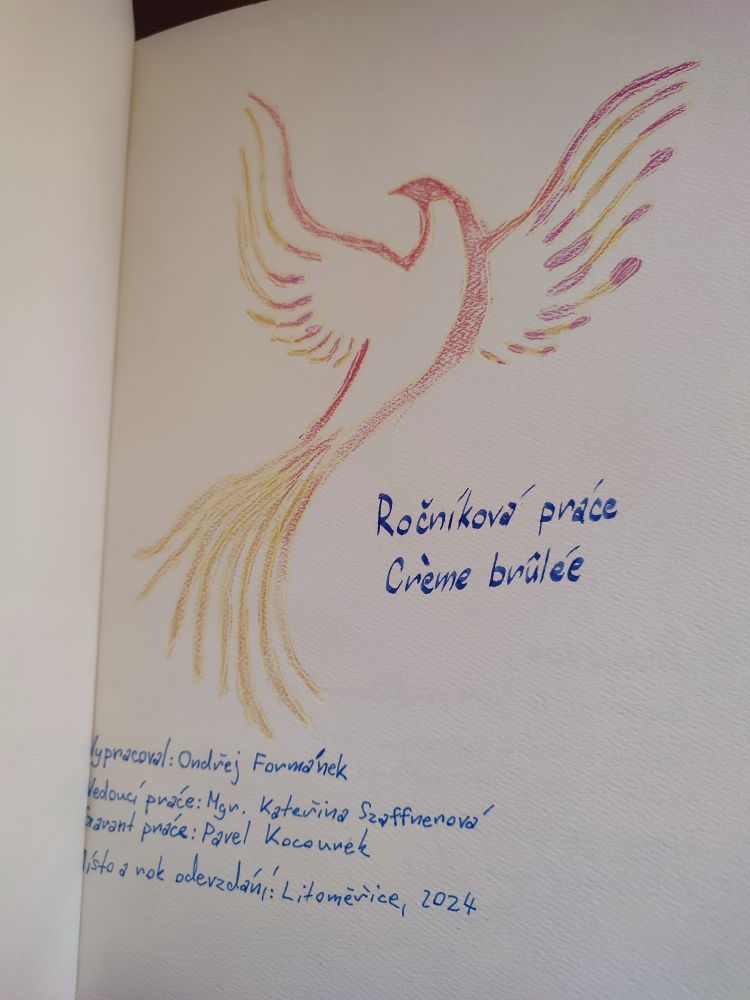 Ročníková práce
Crème brûlée
Vypracoval: Ondřej Formánek
Vedoucí práce: Mgr. Kateřina Szaffnerová
Garant práce: Pavel Kocourek
Místo a rok odevzdání: Litoměřice, 2024